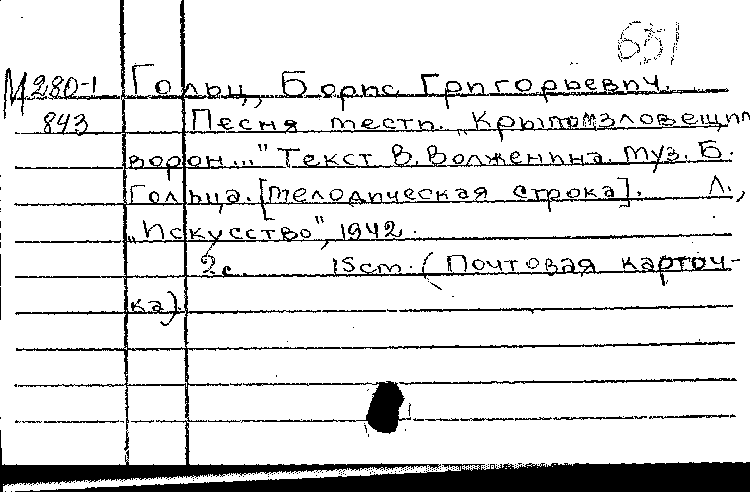 651
М280-1 Гольц, Борис Григорьевич.
843 Песня мести. „Крыломзловещим
ворон..." Текст В. Волженина. Муз. Б.
Гольца. [Мелодическая строка]. Л.,
„Искусство", 1942.
2с. 15cm. (Почтовая карточ-
ка)